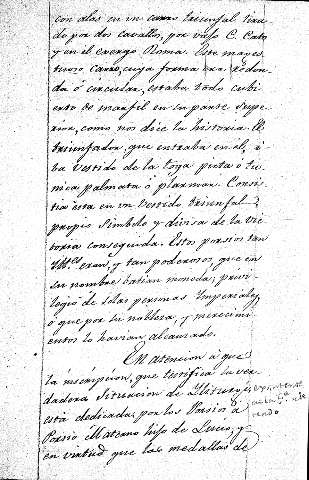 con alas en un carro triunfal tira-
do por dos cavallos, por uso C. Cato
y en el exergo Roma. Este mages-
tuoso carro, cuya forma era redon-
da ó circular, estaba todo cubi-
erto de marfil en su parte supe-
rior, como nos dice la historia. El
triunfador, que entraba en él, i-
ba vestido de la toga picta ó tu-
nica palmata ó
esta en un vestido triunfal
propio simbolo y divisa de la vic-
toria conseguida. Estos porsios tan
eran, y tan poderosos que en
su nombre batian moneda, privi-
legio de solas personas Imperiales,
ó que por su nobleza, y merecimi-
entos lo havian alcanzado.
En atencion á que
la inscripcion, que testifica la ver-
dadera situacion de Iliturgi,
está dedicada por los Porsios á
Porsio Materno hijo de Lucio, y
en virtud que las medallas de